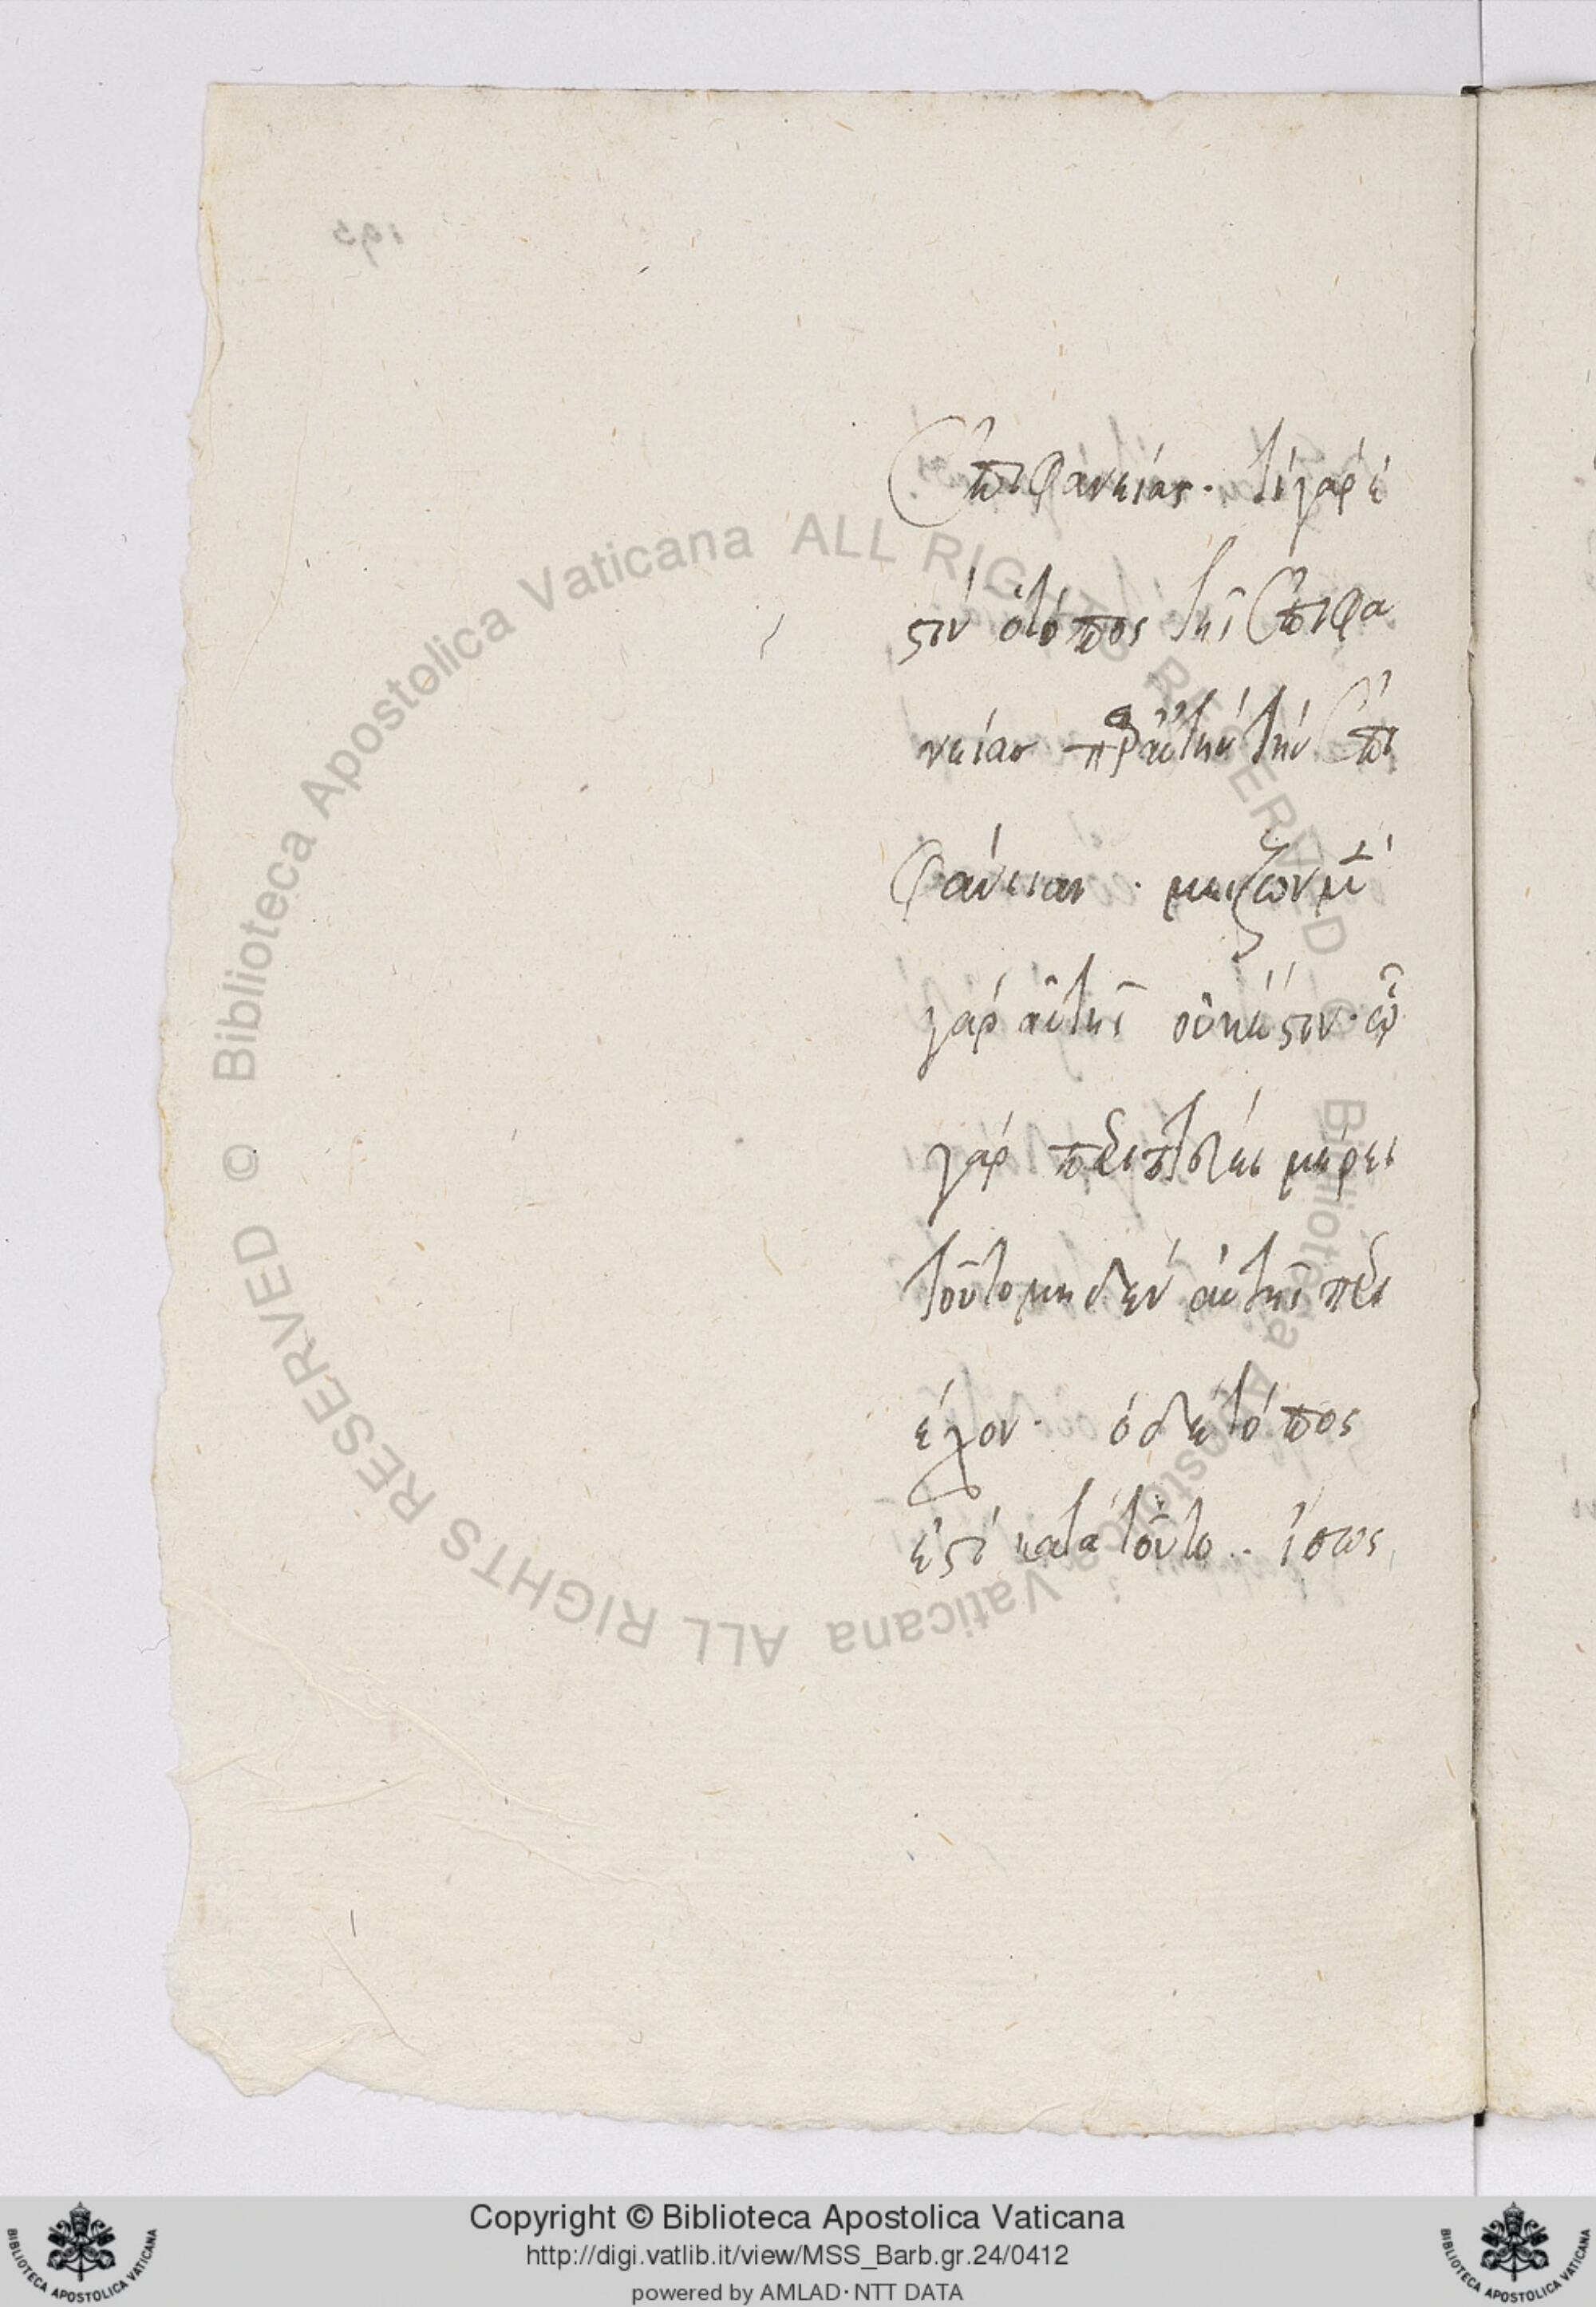 ἐπιφανείας. τί γάρ ἐ
στιν ὁ τόπος τῆς ἐπιφα
νείας παρ' αὐτὴν τὴν ἐπι
φάνειαν. μεῖζον μὲν
γὰρ αὐτῆς οὐκ ἔστιν.
γὰρ μέρει
τοῦτο μηδὲν αὐτῆς περι
έχον. ὁ δὲ τόπος
ἐστὶ κατὰ τοῦτο.. ἴσως
Biblioteca Apostolica Vaticana ALL RIGHTS RESERVED ©
Biblioteca Apostolica Vaticana ALL RIGHTS RESERVED ©
Copyright © Biblioteca Apostolica Vaticana
http://digi.vatlib.it/view/MSS_Barb.gr.24/0412
powered by AMLAD·NTT DATA
BIBLIOTECA APOSTOLICA VATICANA
BIBLIOTECA APOSTOLICA VATICANA